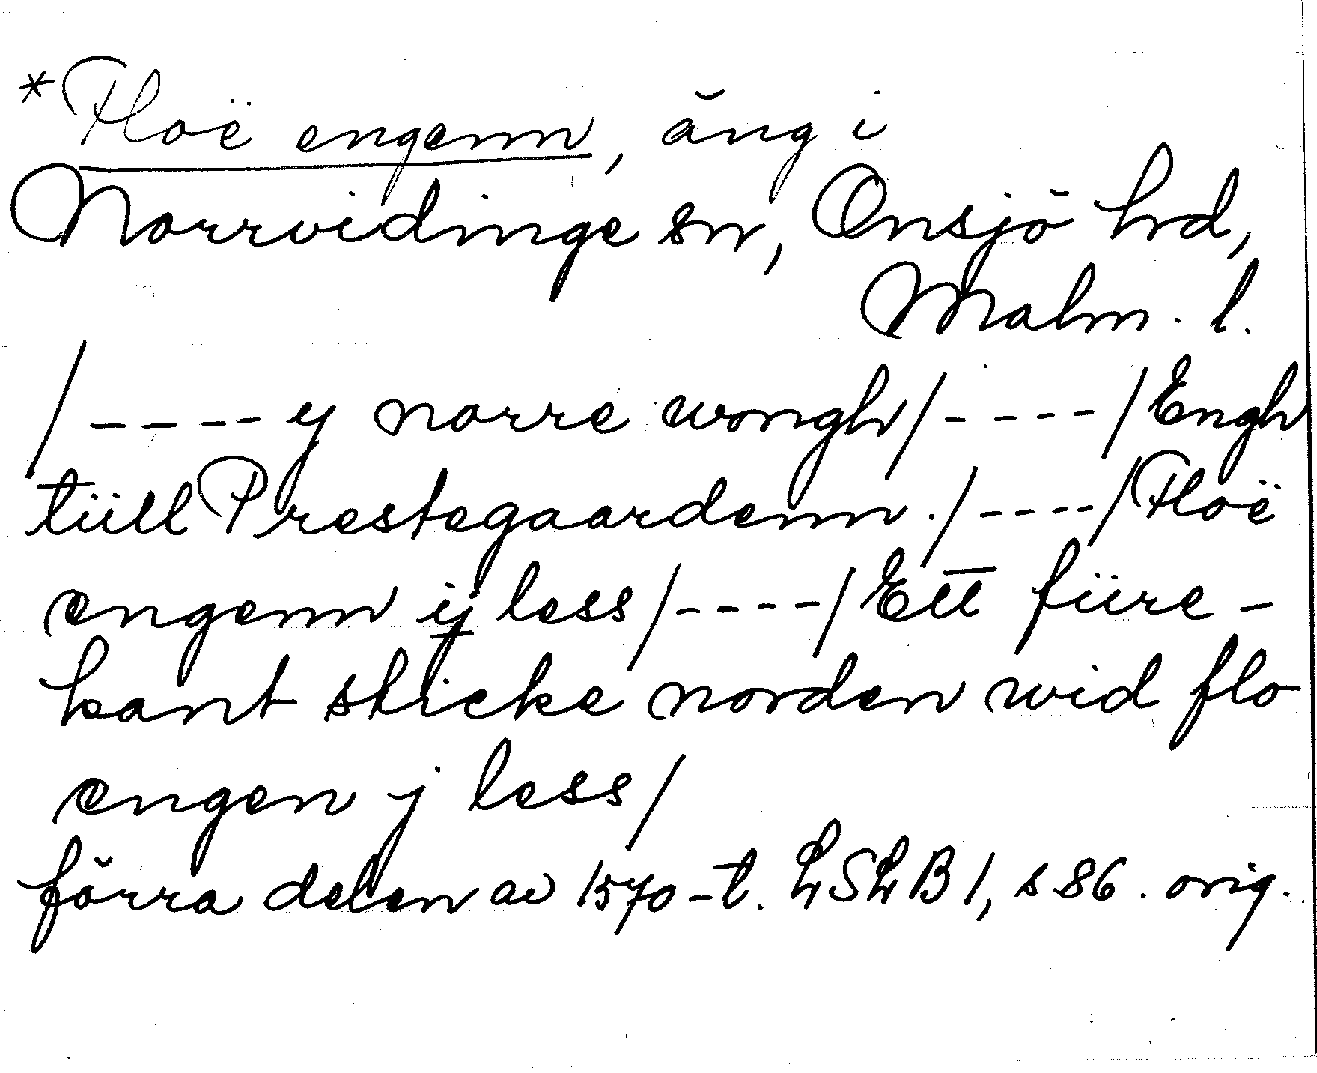 *Floë engenn, äng i
Norrvidinge sn, Onsjö hrd,
Malm. l.
/---- y norre wongh/----/Engh
tüll Prestegaardenn./----/Floë
engenn ij less/----/Ett füre-
kant sticke norden wid flo
engen j less/
förra delen av 1570-t. LSLB 1, s 86. orig.